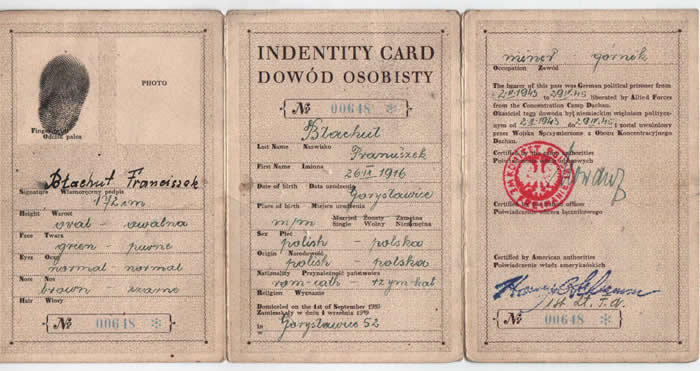 PHOTO
Finger print
Odcisk palca
Błachut Franciszek
Signature Własnoręczny podpis
172 cm
Height Wzrost
oval - owalna
Face Twarz
green - piwne
Eyes Oczy
normal - normal
Nose Nos
brown - czarne
Hair Włosy
№ 00648
INDENTITY CARD
DOWÓD OSOBISTY
№ 00648
Błachut
Last Name Nazwisko
Franciszek
First Name Imiona
Date of birth Data urodzenia
Place of birth Miejsce urodzenia
m/m Married Żonaty Zamężna
Single Wolny Niezamężna
Sex Płeć
polish - polska
Origin Narodowość
polish - polska
Nationality Przynależność państwowa
rom-cath - rzym-kat
Religion Wyznanie
Domiciled on the 1st of September 1939
Zamieszkały w dniu 1 września 1939
in
w
miner górnik
Occupation Zawód
The bearer of this pass was German political prisoner from
to liberated by Allied Forces
from the Concentration Camp Dachau.
Okaziciel tego dowodu był niemieckim więźniem politycznym
od do i został uwolniony
przez Wojska Sprzymierzone z Obozu Koncentracyjnego
Dachau.
Certified by authorities
Poświadczenie
officer
Poświadczenie oficera łącznikowego
Certified by American authorities
Poświadczenie władz amerykańskich
1st Lt. F.A.
№ 00648